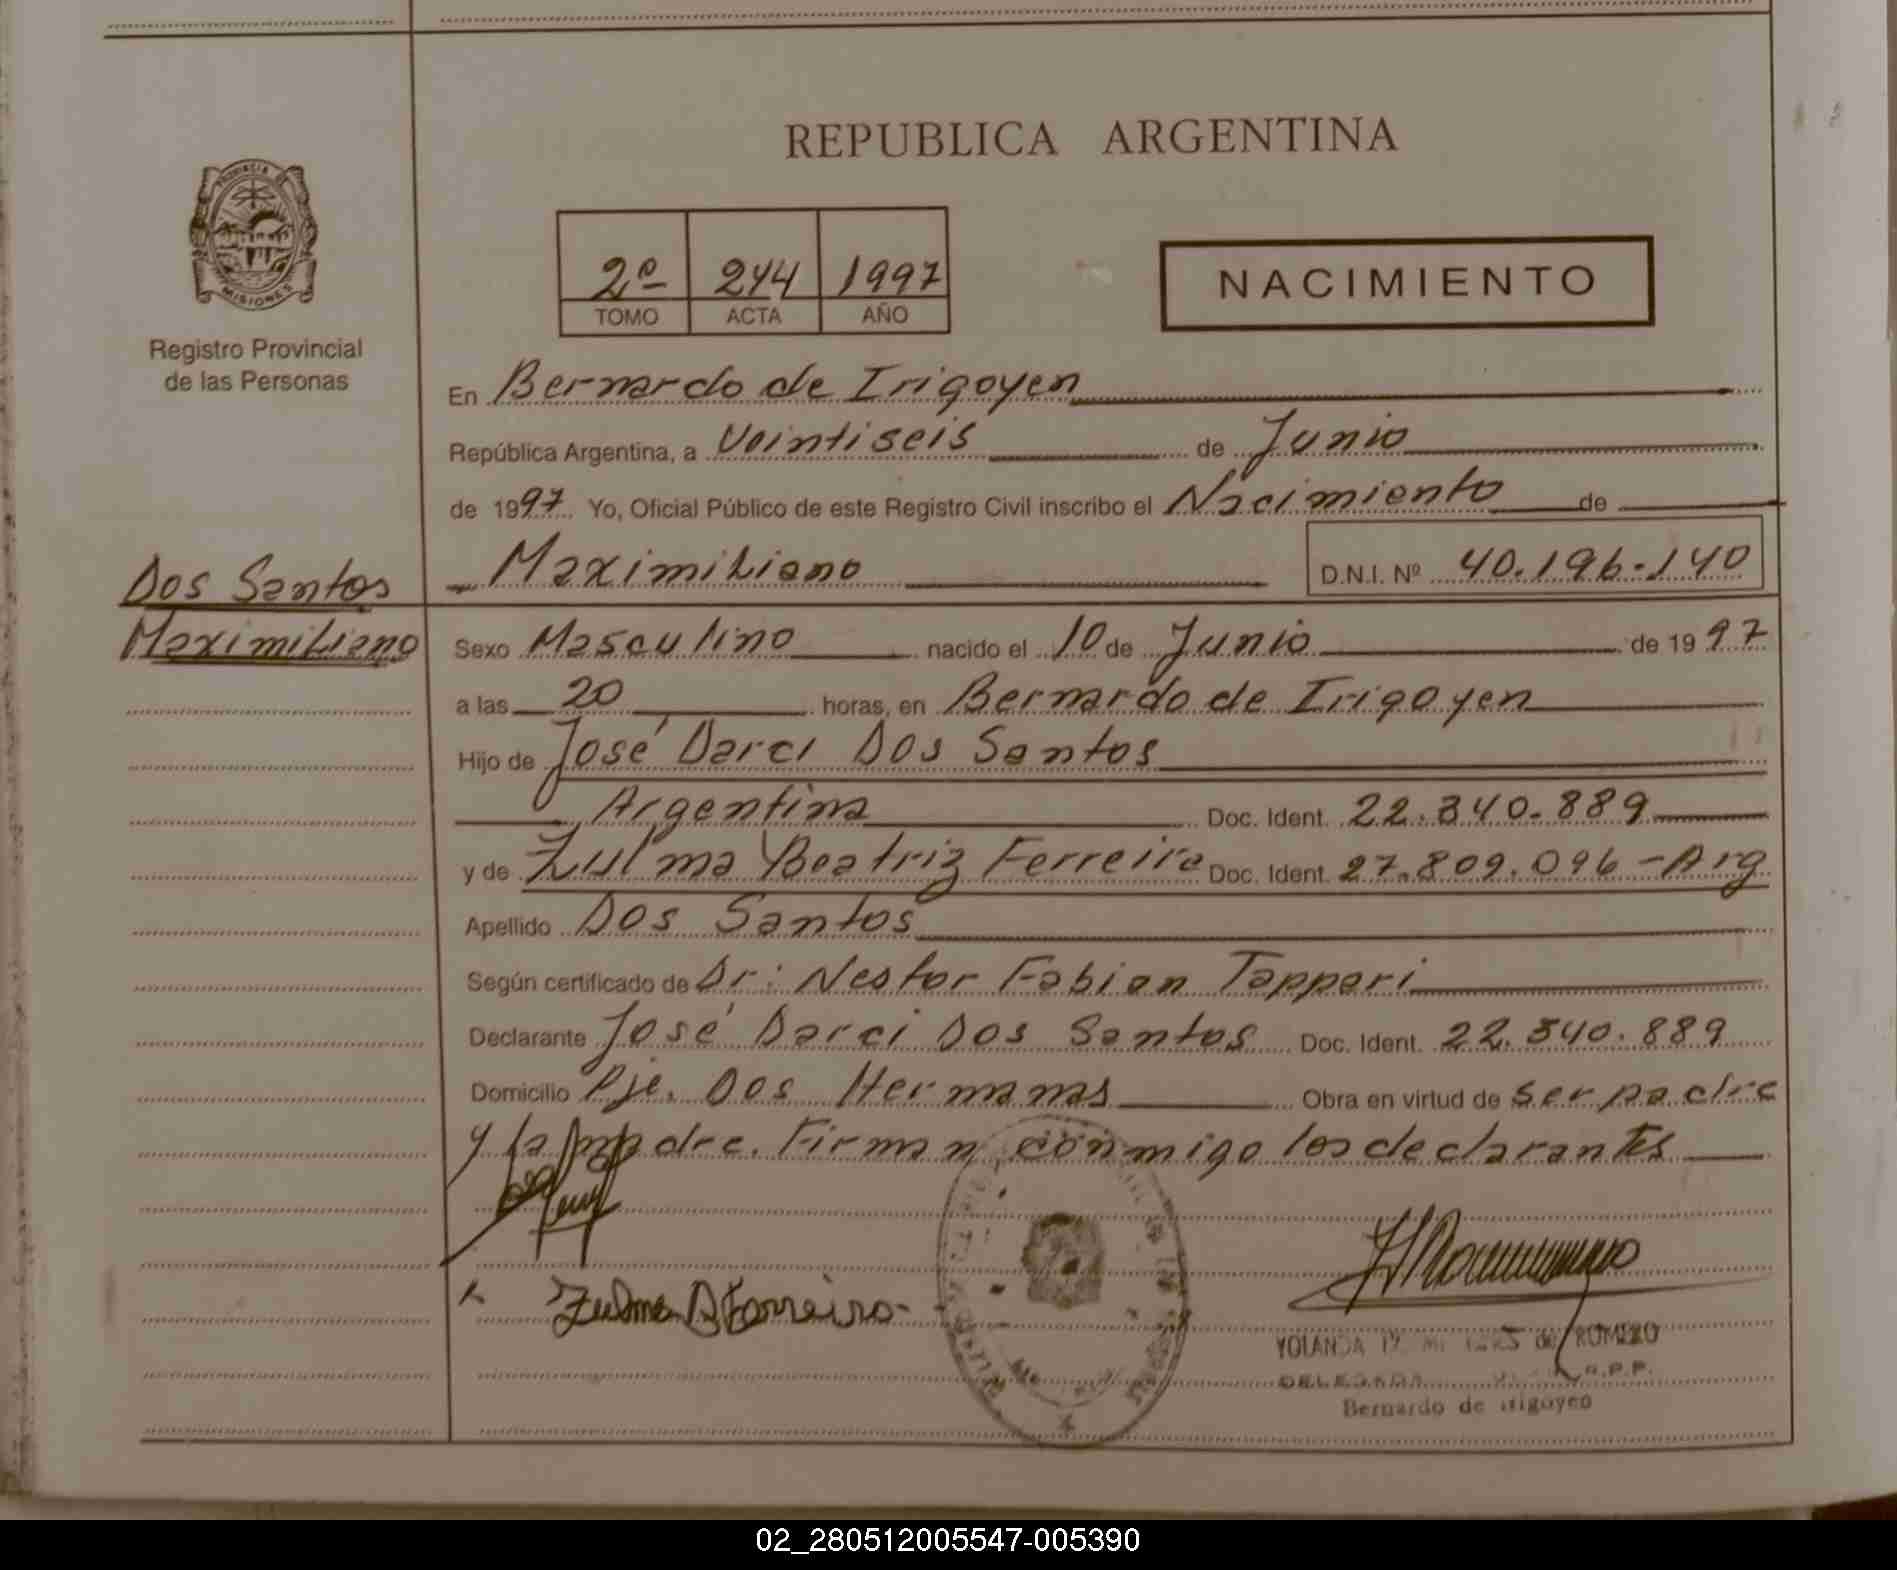 REPUBLICA ARGENTINA
PROVINCIA DE
MISIONES
Registro Provincial
de las Personas
2º 244 1997
TOMO ACTA AÑO
NACIMIENTO
En Bernardo de Irigoyen
República Argentina, a Veintiseis de Junio
de 1997. Yo, Oficial Público de este Registro Civil inscribo el Nacimiento de
Dos Santos
Maximiliano
Maximiliano D.N.I. Nº 40.196.140
Sexo Masculino nacido el 10 de Junio de 1997
a las 20 horas, en Bernardo de Irigoyen
Hijo de José Darci Dos Santos
Argentina Doc. Ident. 22.340.889
y de Zulma Beatriz Ferreira Doc. Ident. 27.809.096-Arg
Apellido Dos Santos
Según certificado de Dr: Nestor Fabian Tappari
Declarante José Darci Dos Santos Doc. Ident. 22.340.889
Domicilio Pje. Dos Hermanas Obra en virtud de ser padre
y la madre. Firman conmigo los declarantes
Zulma B Ferreira
YOLANDA de ROMERO
DELEGADA R.P.P.
Bernardo de Irigoyen
02_280512005547-005390